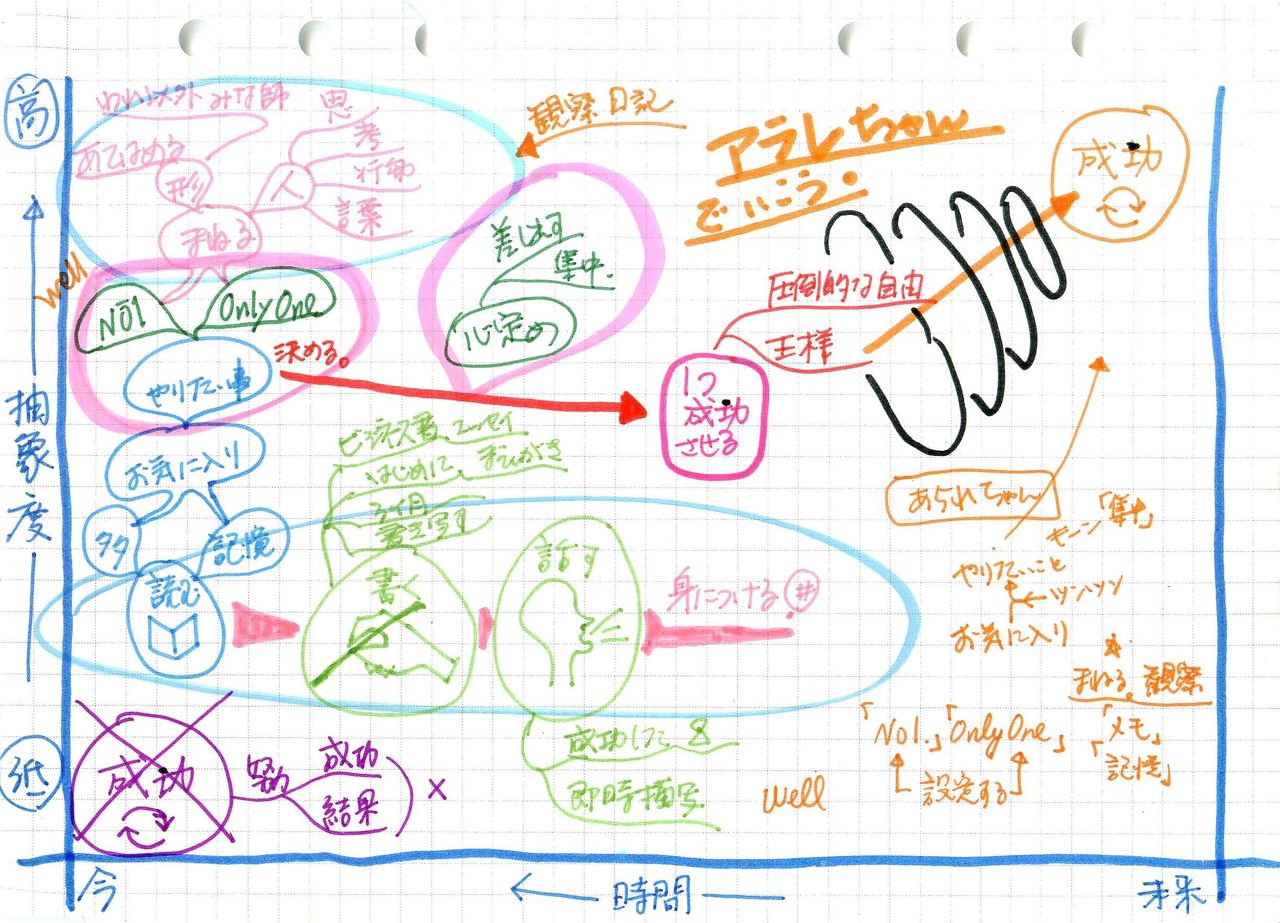 高
われ以外みな師
あてはめる
形
人
思
考
行動
言葉
まねる
観察日記
アラレちゃん
でいこう!
成功
well
No1
OnlyOne
差し出す
集中
心定め
やりたい事
決める。
圧倒的な自由
王様
1つ
成功
させる
抽象度
お気に入り
タタ
記憶
読む
ビジネス書、エッセイ
はじめに、まえがき
3ヶ月
書き写す
書く
話す
身につける
#
成功した
即時描写
あられちゃん
「集中」
やりたいこと
ツンツン
お気に入り
まねる。観察
「No1.」「OnlyOne」
「メモ」
「記憶」
設定する
well
低
成功
努力
成功
結果
×
今
時間
未来